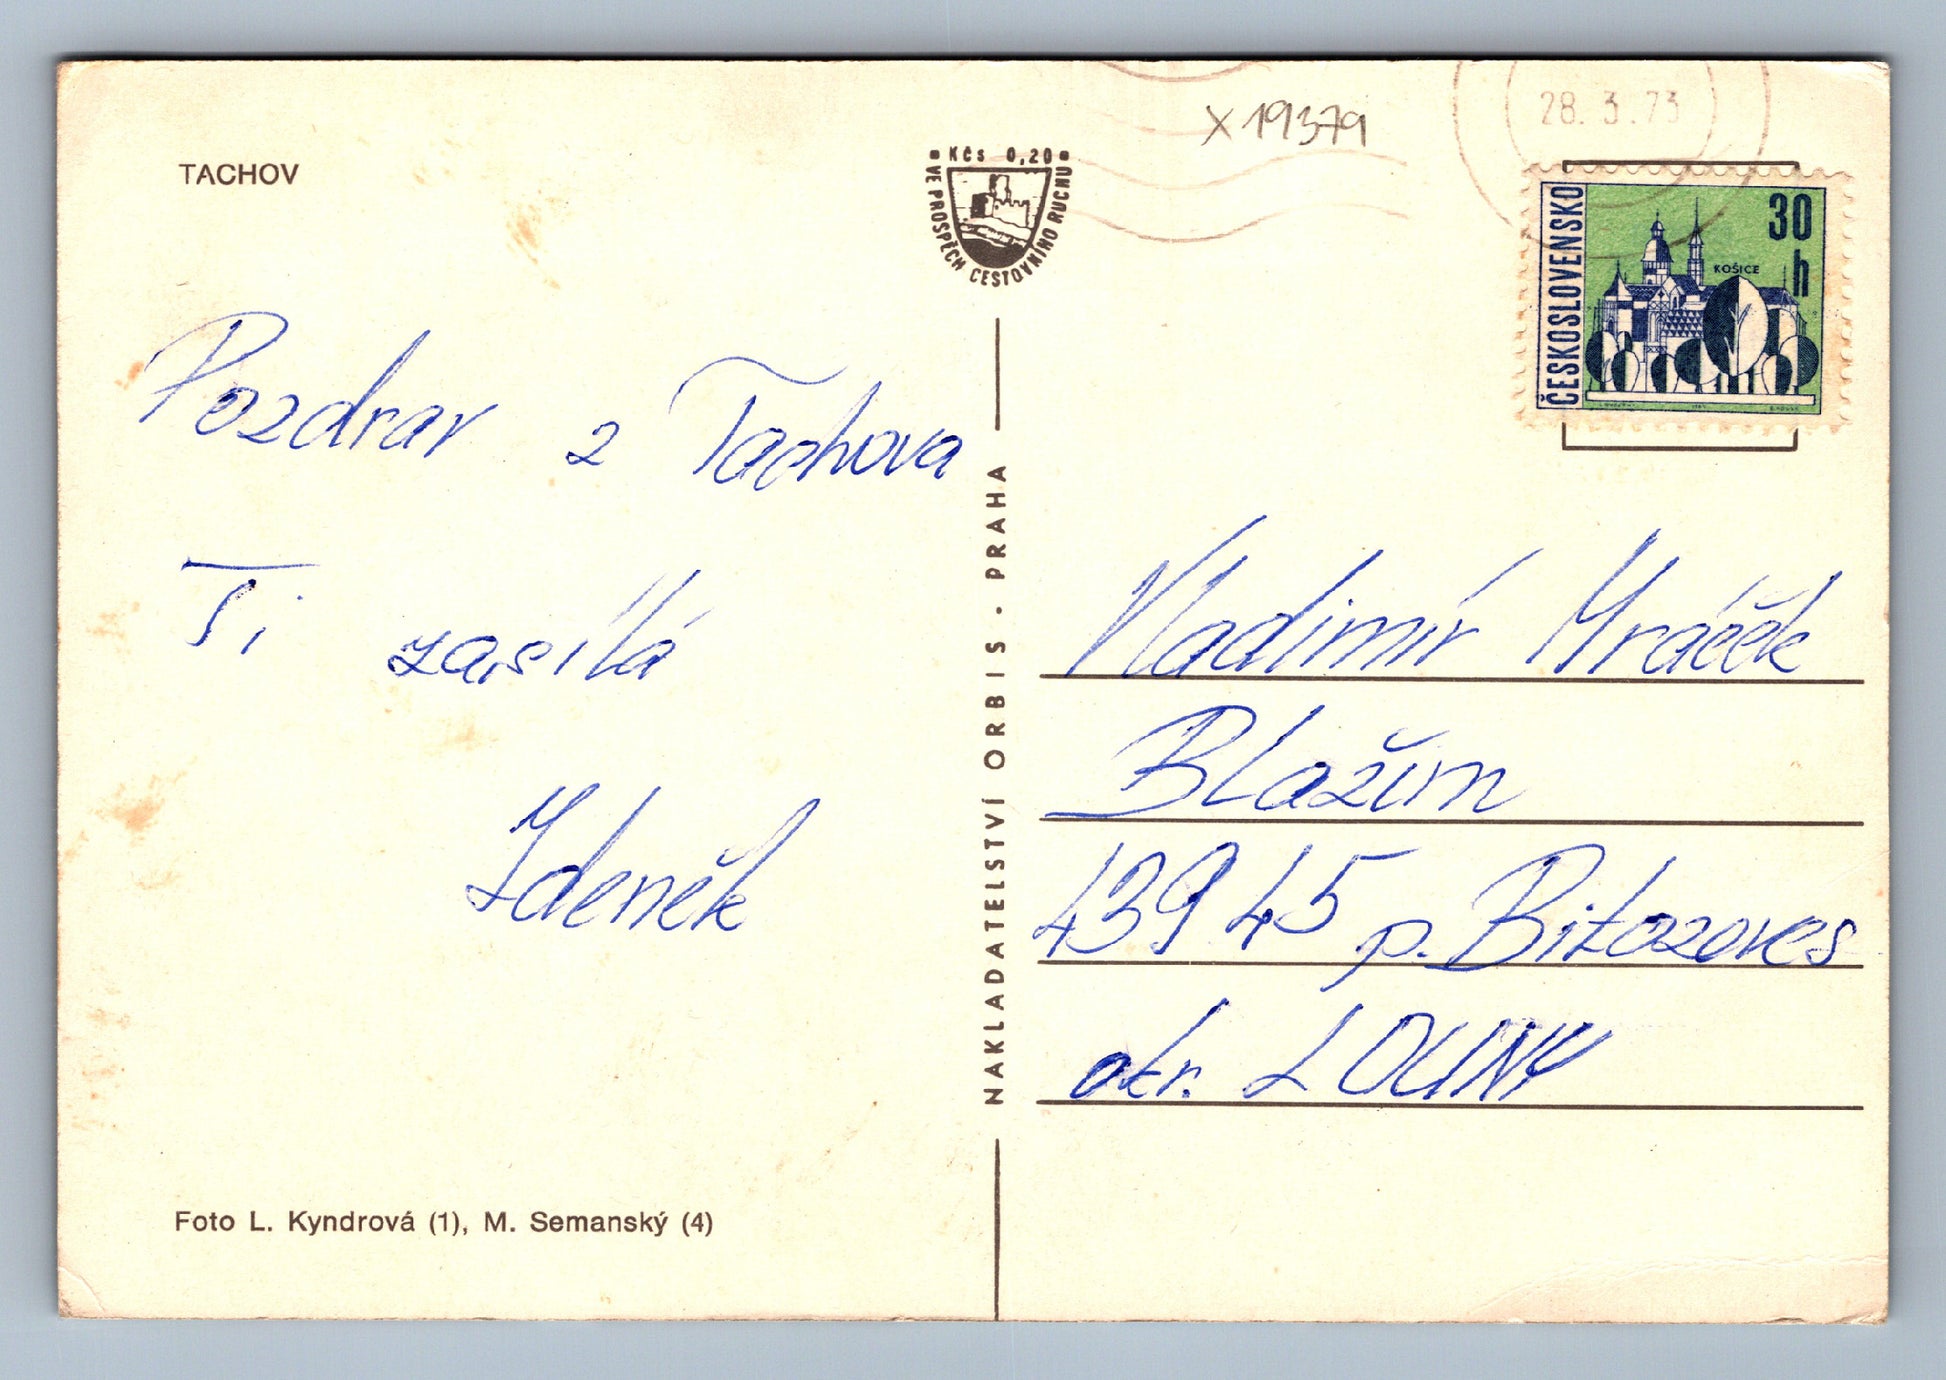 TACHOV
Kčs 0,20
VE PROSPĚCH CESTOVNÍHO RUCHU
X 19379
28.3.73
ČESKOSLOVENSKO
30
h
KOŠICE
Pozdrav z Tachova
Ti zasílá
Zdeněk
NAKLADATELSTVÍ ORBIS - PRAHA
Vladimír Mráček
Blažim
439 45 p. Bitozeves
okr. LOUNY
Foto L. Kyndrová (1), M. Semanský (4)